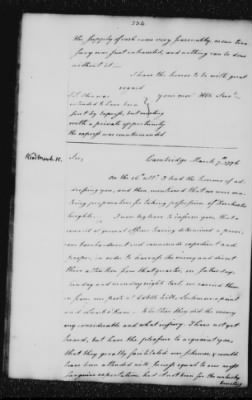 334
the supply of cash may possibly, our trea
sury now just exhausted, and nothing can be done
without it—
I have the honor to be with great
regard
your most Obt Serv
P.S. this was
intended to have been
sent by express, but meeting
with a private opportunity
the express was countermanded
Sir,
Cambridge March 7th 1776
On the 26th ulto I had the honour of ad
dressing you, and then mentioned that we were ma
king preparations for taking possession of Dorchester
heights. I now beg leave to inform you, that a
council of general officers having determined a previ
ous bombardment and cannonade expedient and
proper, in order to harrass the enemy and divert
their attention from that quarter, on saturday,
sunday and monday nights last, we carried them
on from our posts at Cobble hill, Leechmore's point
and Lamb's dam— Whether they did the enemy
any considerable and what injury, I have not yet
heard, but have the pleasure to acquaint you,
that they greatly facilitated our schemes, & would
have been attended with success equal to our most
sanguine expectations, had it not been for the unlucky
bursting